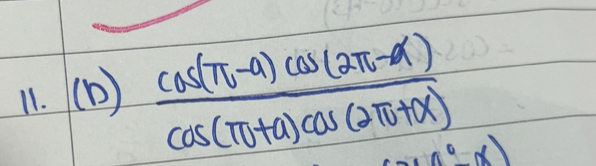 11. (b) cos(π-a) cos(2π-α)
cos(π+a) cos(2π+α)